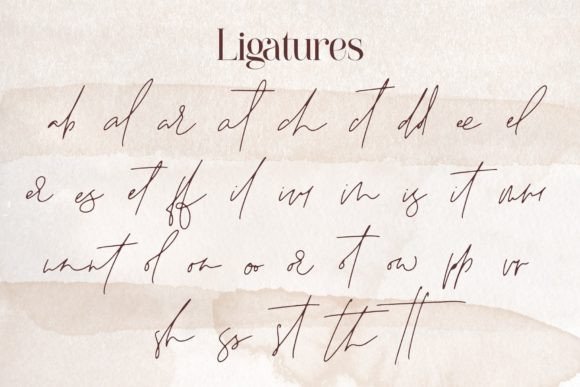 Ligatures
ab al ar at ch ct dd ee el
er es et ff il in is it
ol on oo or ot ow pp
sh ss st th tt